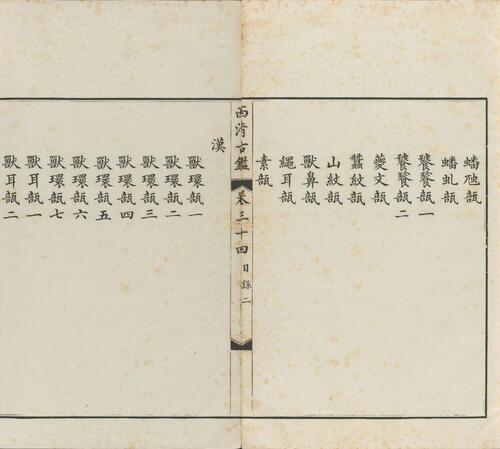 蟠虺瓿
蟠虬瓿
饕餮瓿一
饕餮瓿二
夔文瓿
蠶紋瓿
山紋瓿
獸鼻瓿
繩耳瓿
素瓿
西清古鑑 卷三十四 目錄二
漢
獸環瓿一
獸環瓿二
獸環瓿三
獸環瓿四
獸環瓿五
獸環瓿六
獸環瓿七
獸耳瓿一
獸耳瓿二